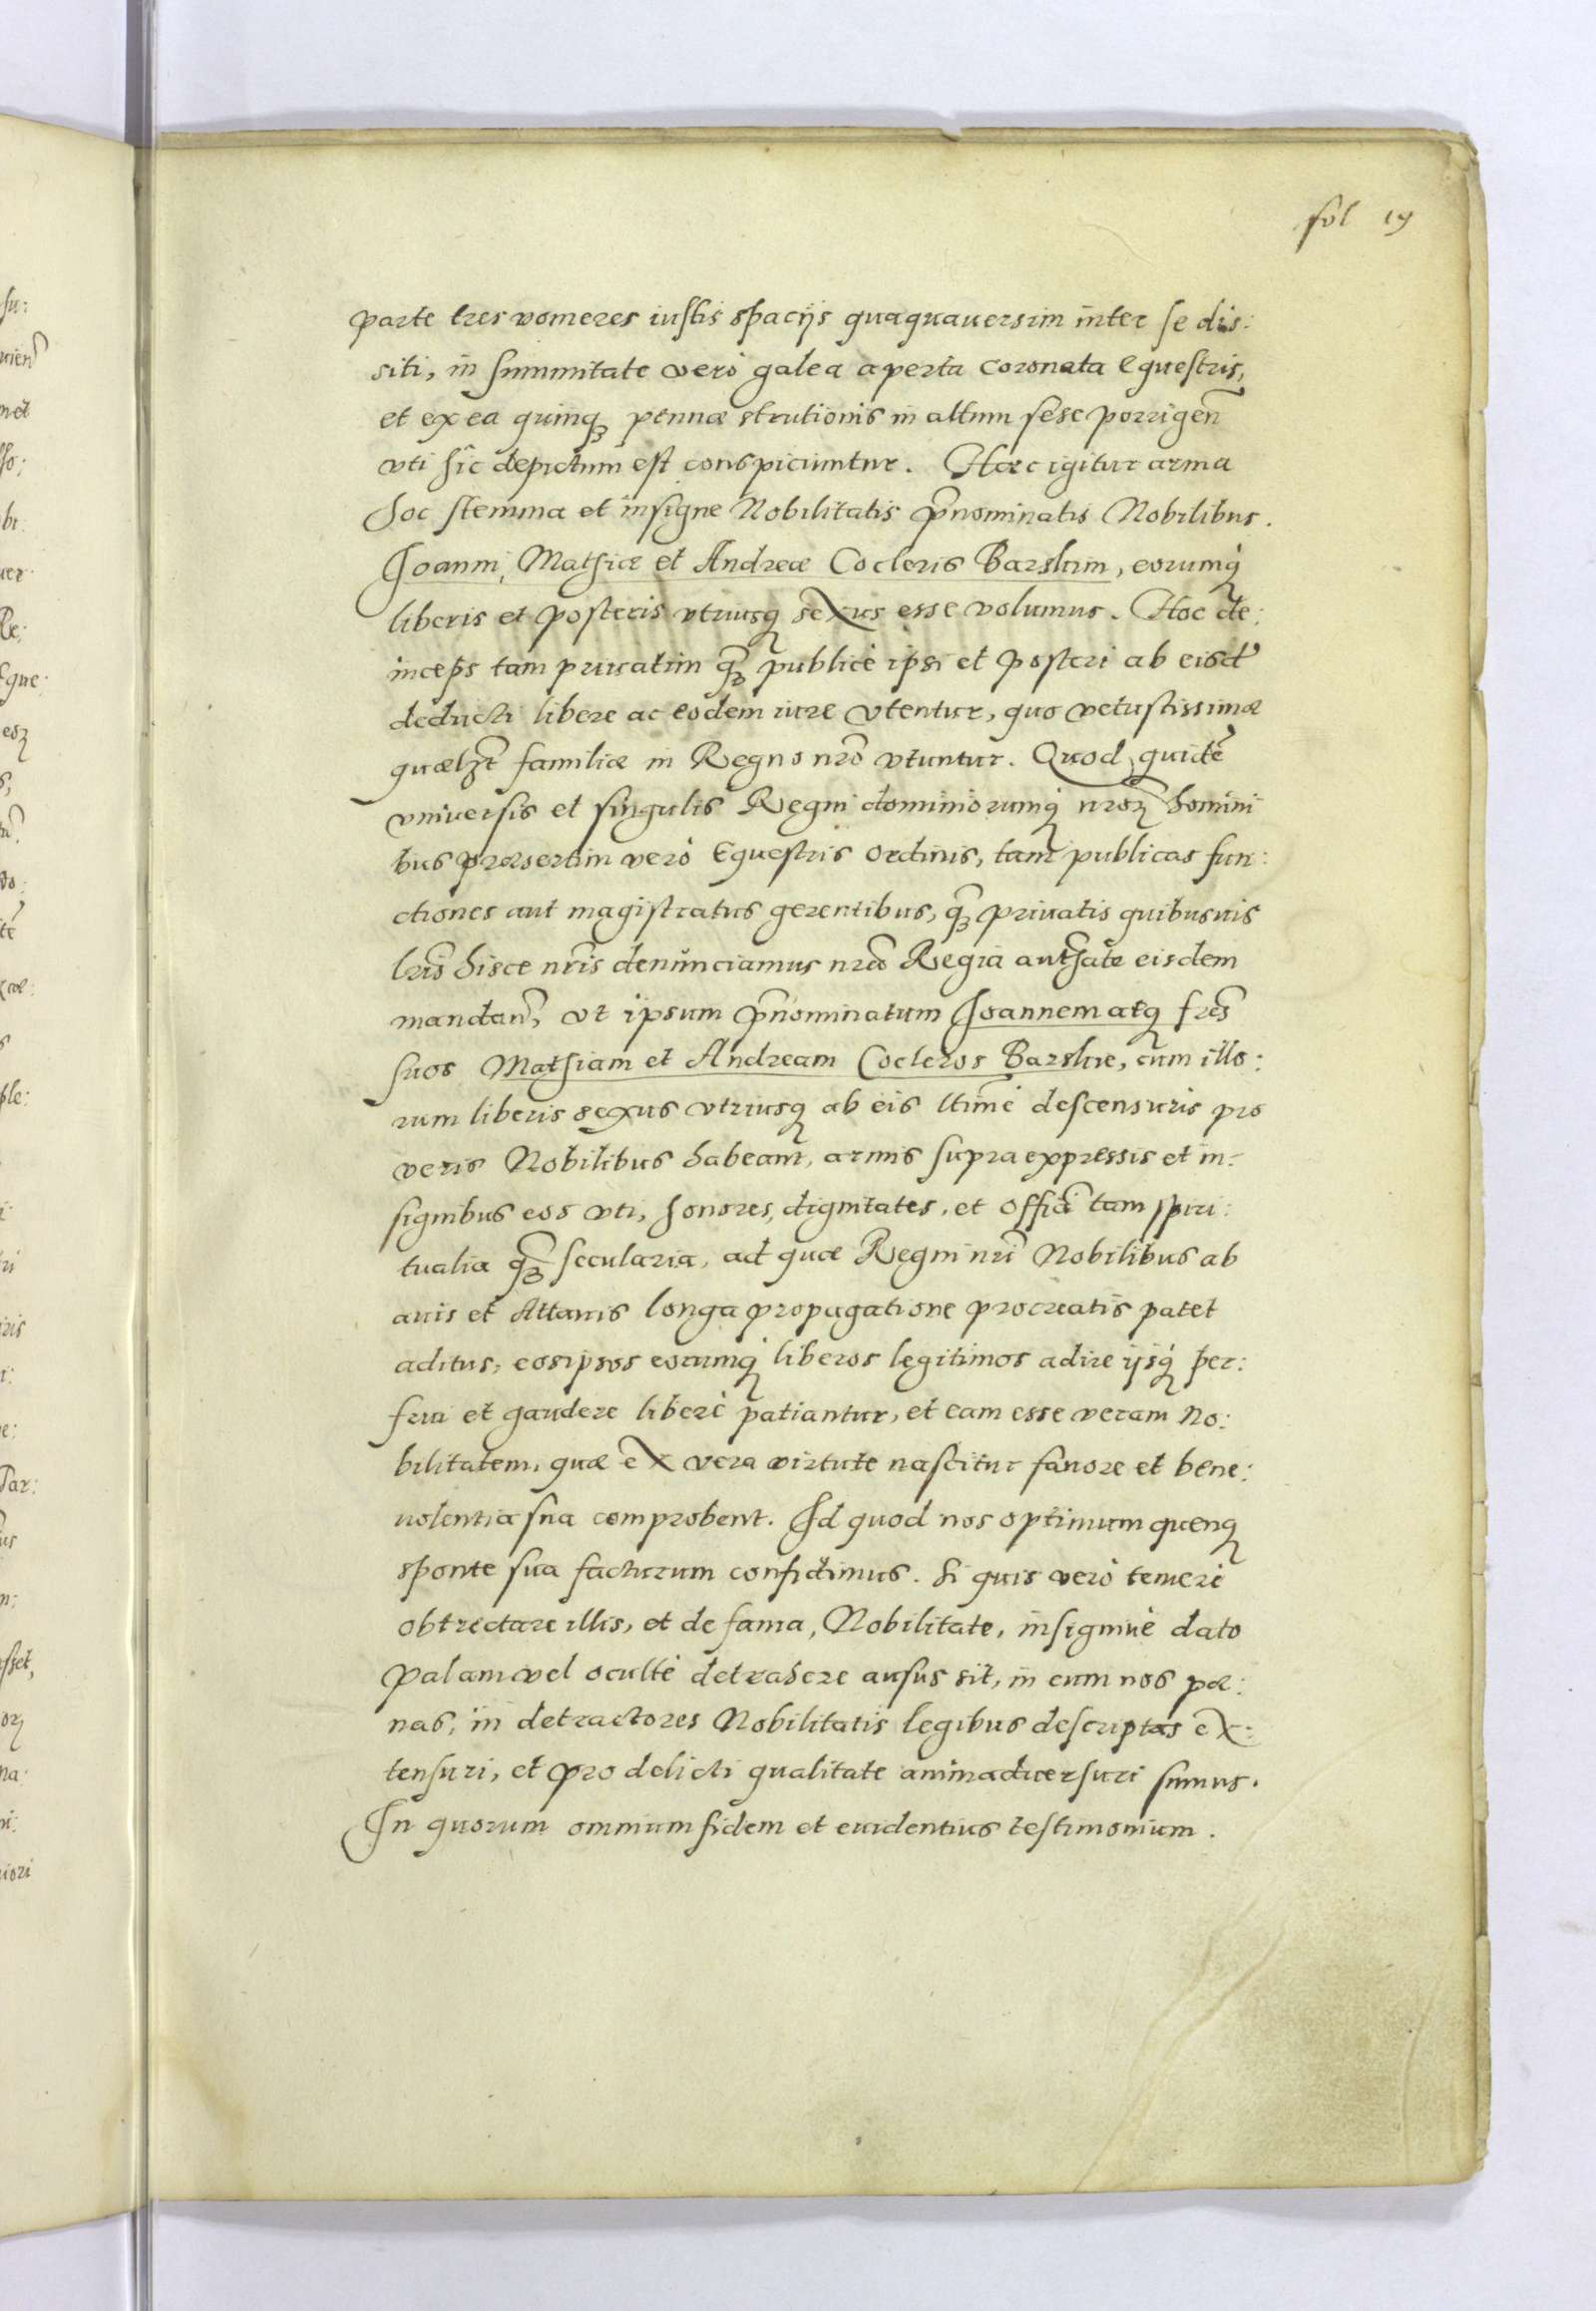 fol 19
parte tres vomeres iustis spacijs quaquauersim inter se dis:
siti, in summitate verò galea aperta coronata Equestris,
et ex ea quinqꝫ pennæ strutionis in altum sese porrigeñ
vti hîc depictum est conspiciuntur. Hæc igitur arma
hoc stemma et insigne Nobilitatis p̃nominatis Nobilibus.
Joanni, Mathiæ et Andreæ Cocleris Barskim, eorumq́ꝫ
liberis et posteris vtriusqꝫ sexus esse volumus. Hoc de:
inceps tam priuatim q̃ꝫ publicè ipsi et posteri ab eisd'
deducti libere ac eodem iure vtentur, quo vetustissimæ
quælꝫt familiæ in Regno nrõ vtuntur. Quod quidẽ
vniuersis et singulis Regni dominiorumq́ꝫ nroꝝ homini
bus præsertim verò Equestris Ordinis, tam publicas fun:
ctiones aut magistratus gerentibus, q̃ꝫ priuatis quibusuis
lr̃is hisce nr̃is denunciamus nrã Regia auth̃ate eisdem
mandañ, vt ipsum p̃nominatum Joannem atqꝫ fres̃
suos Mathiam et Andream Cocleros Barskie, cum illo:
rum liberis sexus vtriusqꝫ ab eis ltimẽ descensuris pro
veris Nobilibus habeant, armis supra expressis et in:
signibus eos vti, honores, dignitates, et offiã tam spiri:
tualia q̃ꝫ secularia, ad quæ Regni nrĩ Nobilibus ab
auis et Attauis longa propagatione procreatis patet
aditus, eos ipsos eorumq́ꝫ liberos legitimos adire ijsq́ꝫ per:
frui et gaudere liberè patiantur, et eam esse veram No:
bilitatem, quæ ex vera virtute nascitur fauore et bene:
uolentia sua comprobent. Id quod nos optimum quenqꝫ
sponte sua facturum confidimus. Si quis verò temerè
obtrectare illis, et de fama, Nobilitate, insigniuè dato
palam vel ocultè detrahere ausus sit, in eum nos pæ:
nas, in detractores Nobilitatis legibus descriptas ex:
tensuri, et pro delicti qualitate animaduersuri sumus.
In quorum omnium fidem et euidentius testimonium.